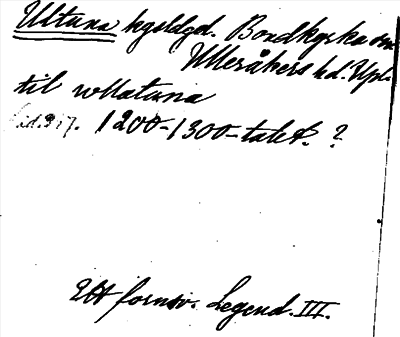 Ultuna kgsldgd. Bondkyrka sn
Ulleråkers hd. Upl.
til wllatuna
sid. 317. 1200-1300-talet. ?
Ett fornsv. Legend. III.